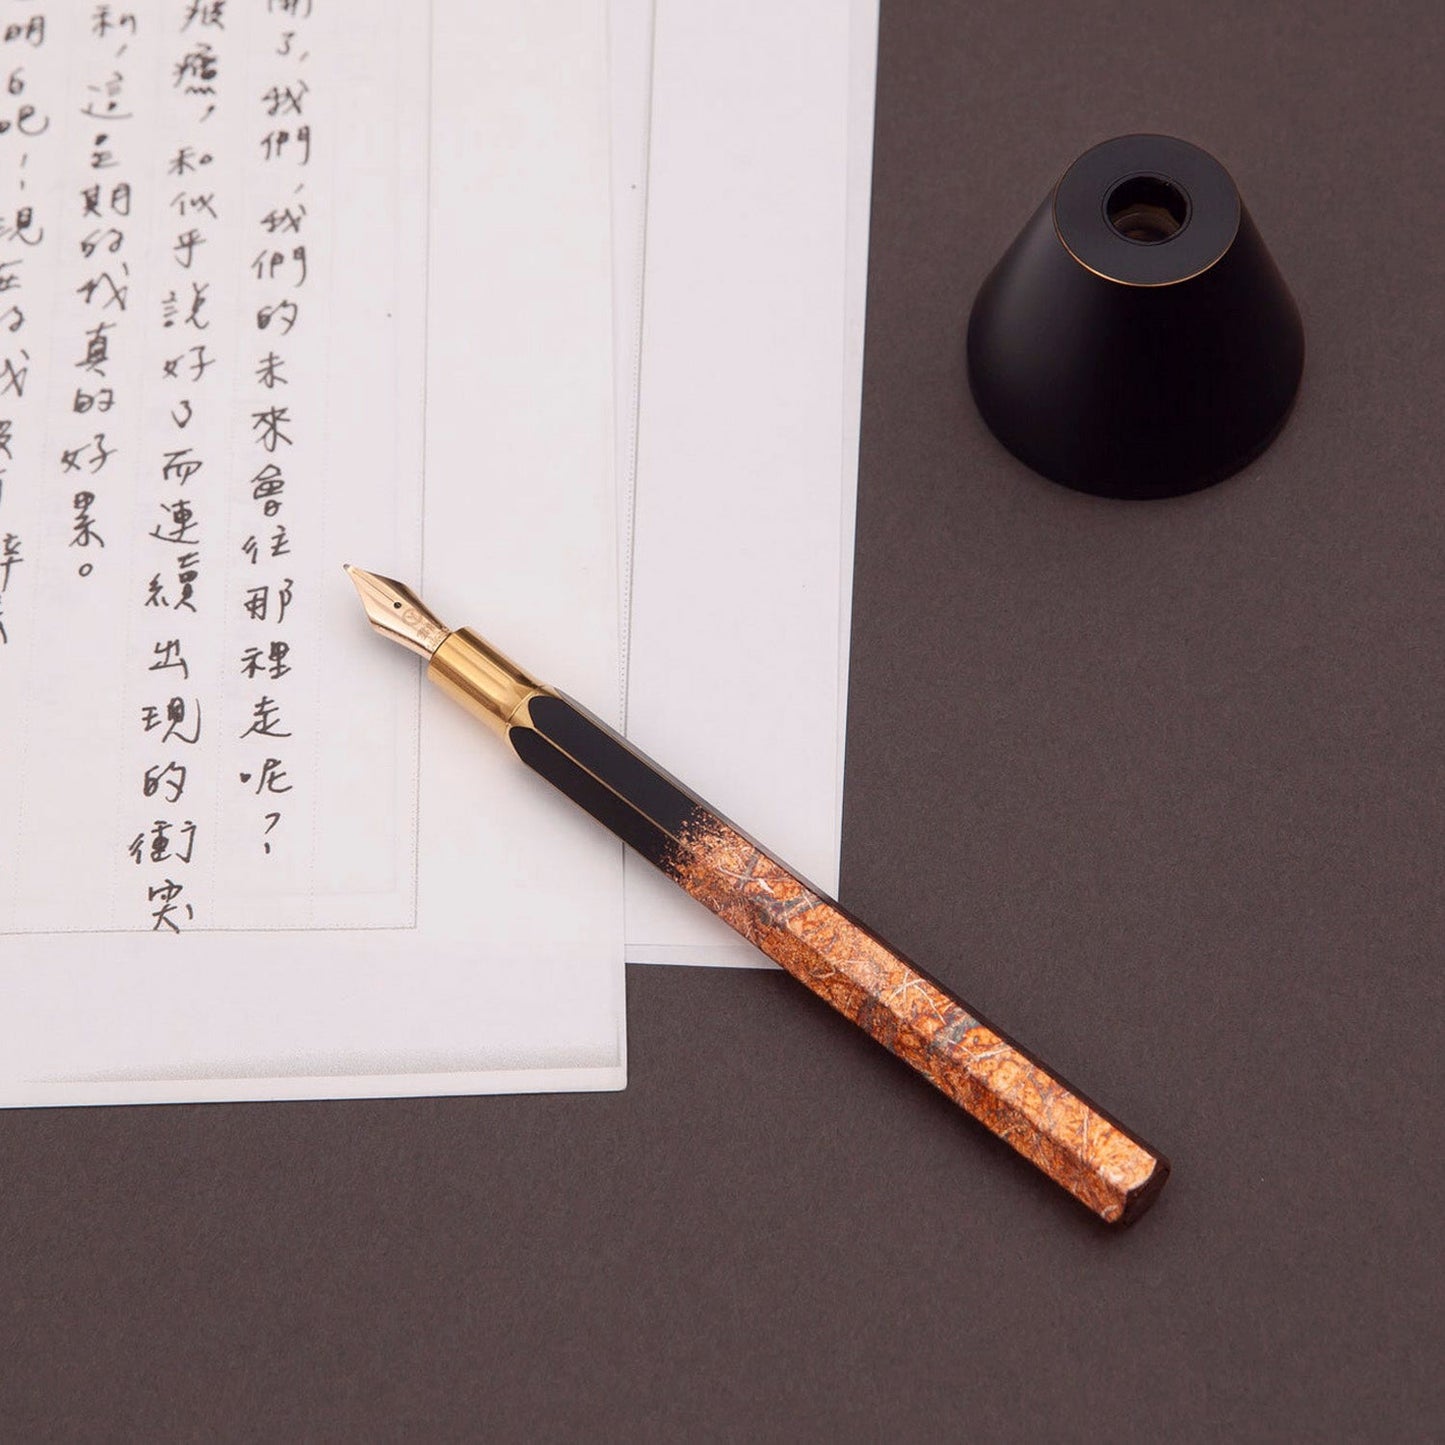 了，我們，我們的未來會往那裡走呢？
疲憊，和似乎說好了而連續出現的衝突
利，這之期的我真的好累。
明白吧！現在的我